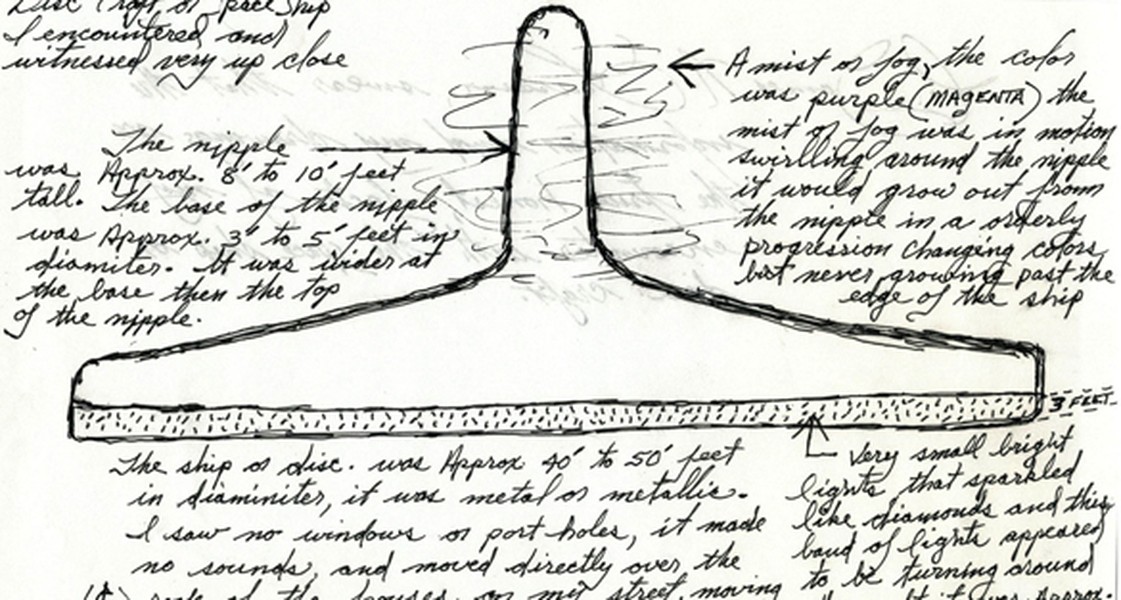 Disc Craft or Space Ship
I encountered and
witnessed very up close
The nipple
was Approx. 8' to 10' feet
tall. The base of the nipple
was Approx. 3' to 5' feet in
diamiter. It was wider at
the base then the top
of the nipple.
A mist or fog, the color
was purple (MAGENTA) the
mist or fog was in motion
swirlling around the nipple
it would grow out from
the nipple in a orderly
progression changing colors,
but never growing past the
edge of the ship
3 FEET
The ship or disc. was Approx 40' to 50' feet
in diaminiter, it was metal or metallic.
I saw no windows or port holes, it made
no sounds, and moved directly over the
of the houses, on my street, moving
Very small bright
lights that sparkled
like diamonds and this
band of lights appeared
to be turning around
it was Approx.